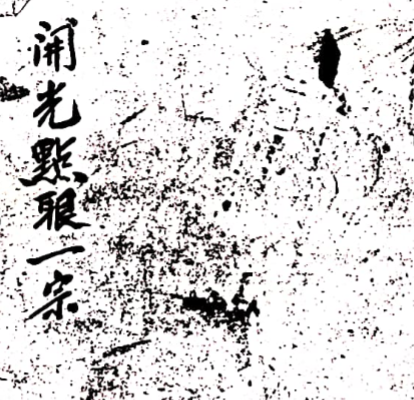 開光點眼一宗